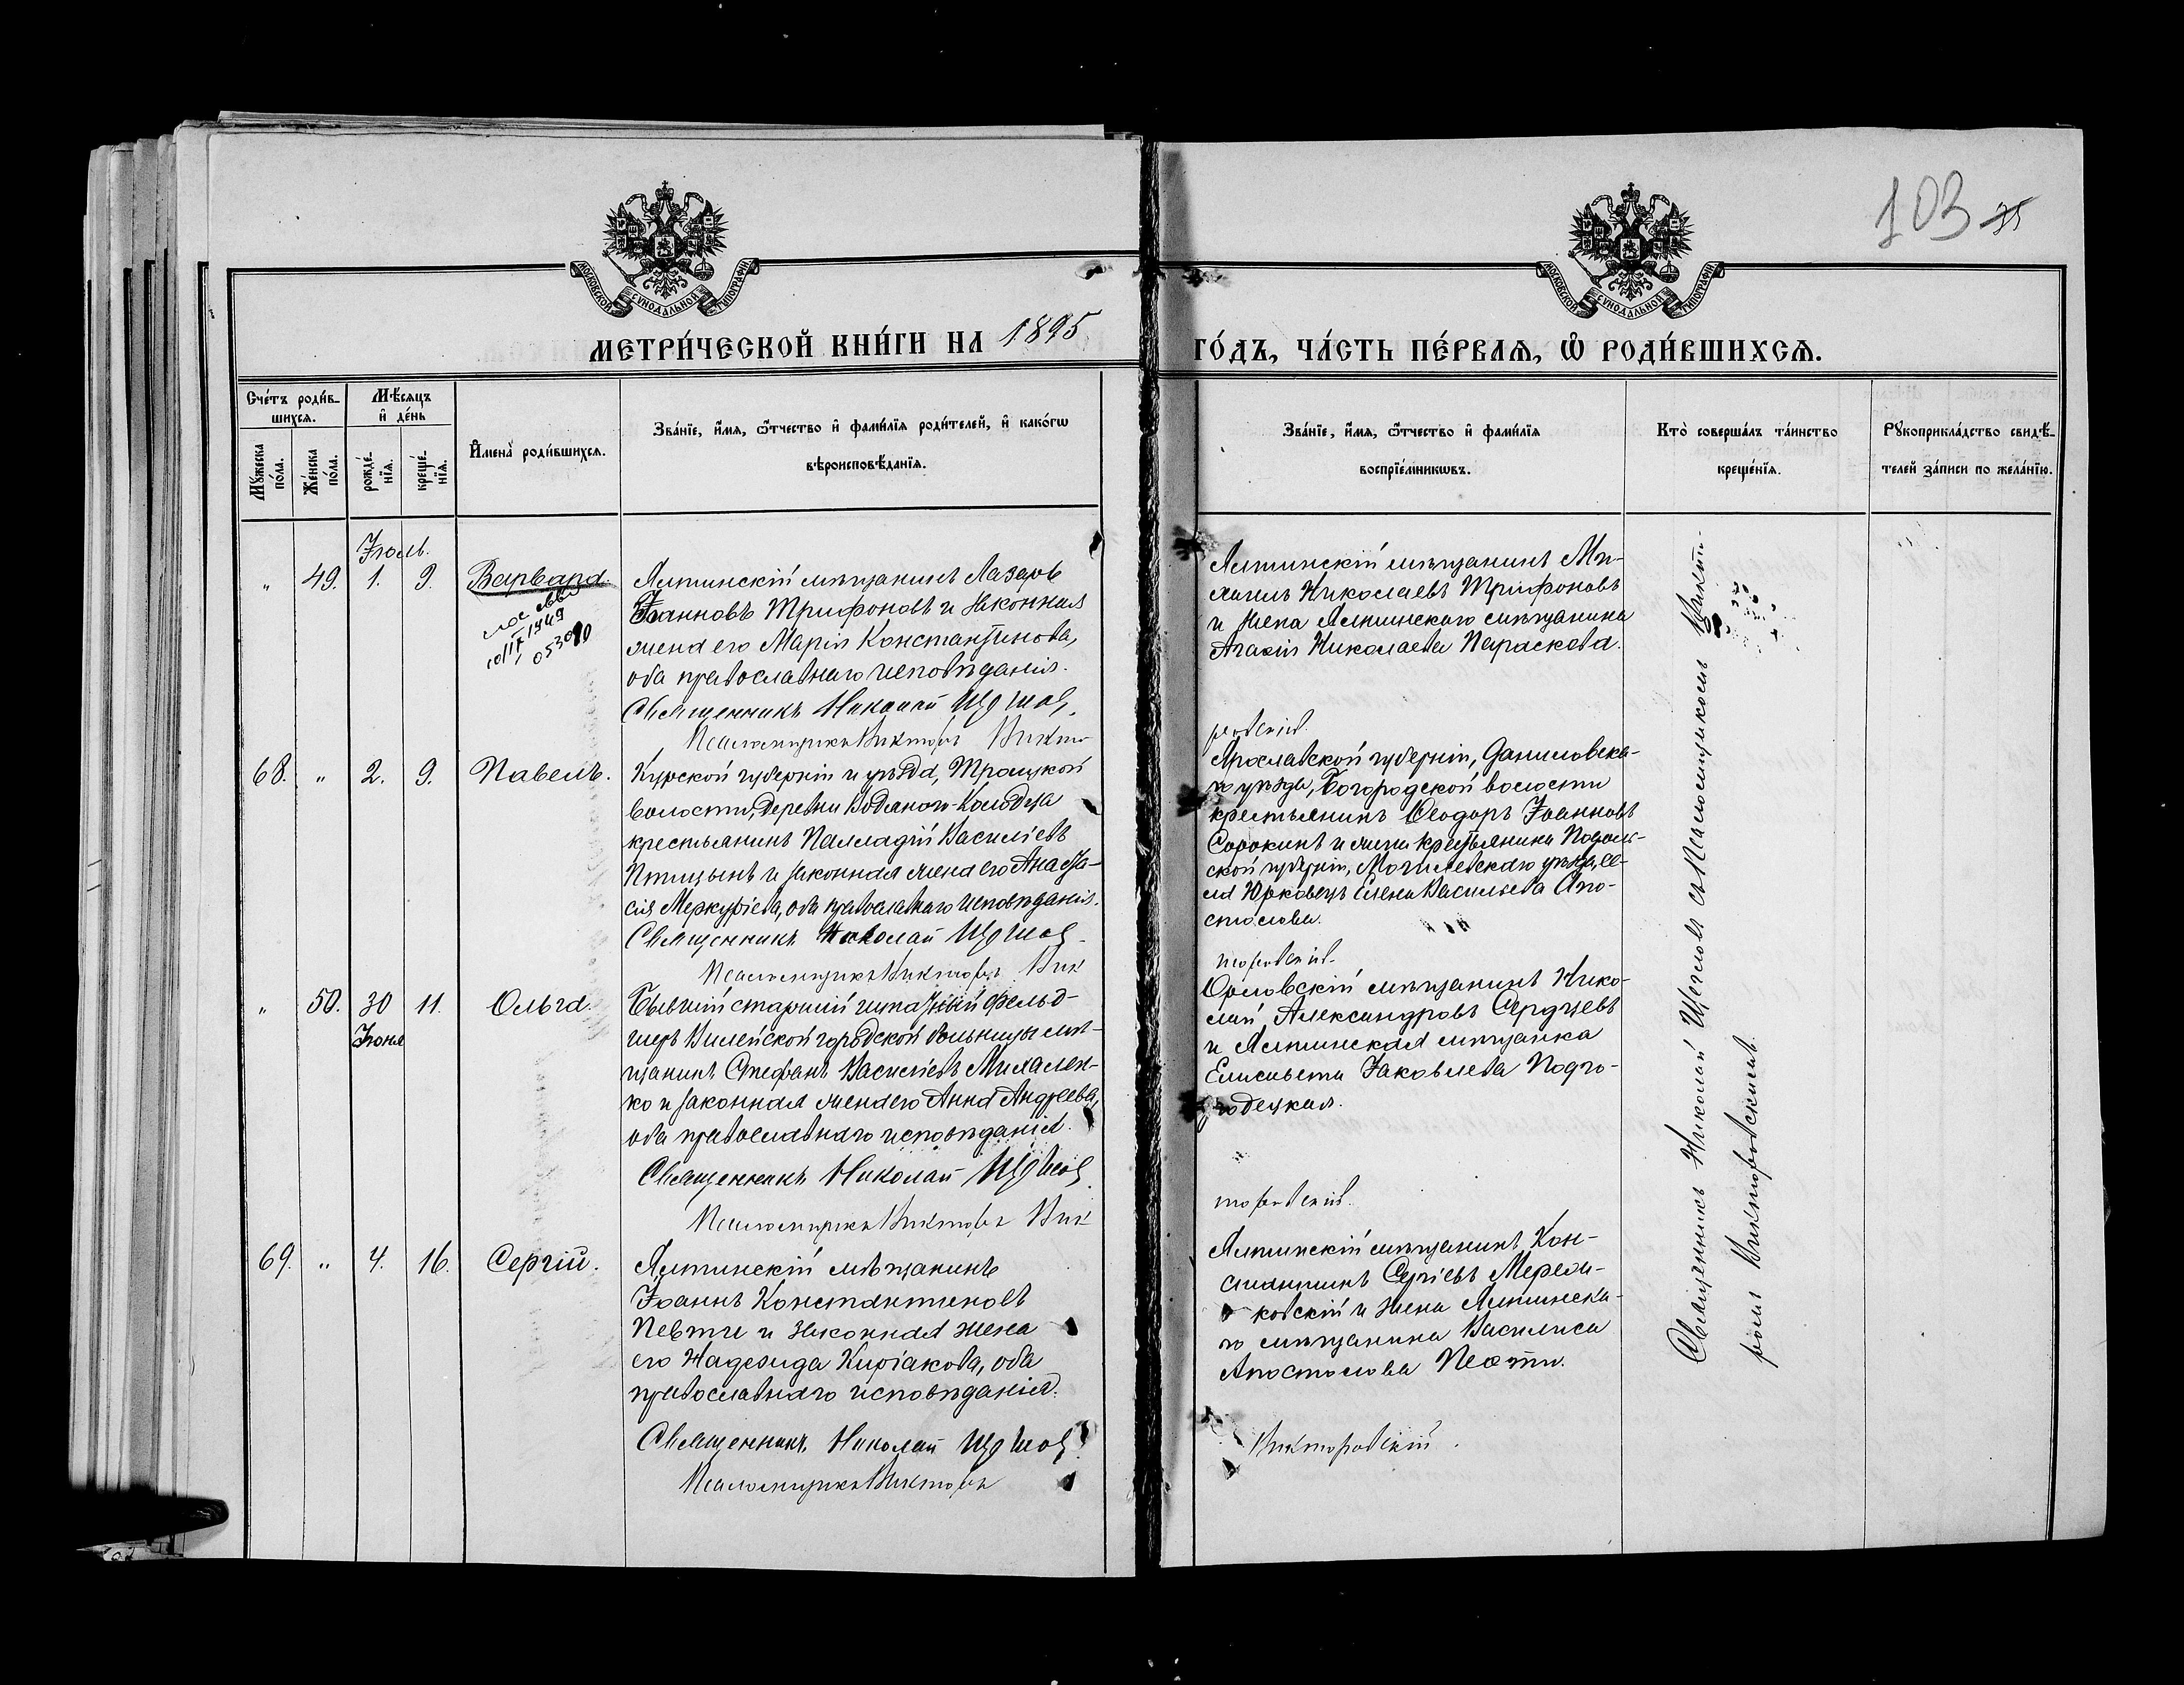 103 75
МОСКОВСКОЙ СѴНОДАЛЬНОЙ ТИПОГРАФІИ
МОСКОВСКОЙ СѴНОДАЛЬНОЙ ТИПОГРАФІИ
МЕТРИ́ЧЕСКОЙ КНИ́ГИ НА 1895 ГО́ДЪ, ЧА́СТЬ ПЕ́РВАЯ, Ѽ РОДИ́ВШИХСЯ.
Сче́тъ роди́в-
шихся.
Мꙋ́жеска по́ла.
Же́нска по́ла.
Мѣ́сяцъ
и҆ де́нь
рожде́-
нїя.
креще́-
нїя.
И҆мена̀ роди́вшихся.
Зва́нїе, и҆́мя, ѻ҆́тчество и҆ фами́лїя роди́телей, и҆ како́гѡ
вѣроисповѣ́данїя.
Зва́нїе, и҆́мя, ѻ҆́тчество и҆ фами́лїя
воспрїе́мникѡвъ.
Кто̀ соверша́лъ та́инство
креще́нїя.
Рꙋкоприкла́дство свидѣ́-
телей за́писи по жела́нїю.
Іюль.
" 49. 1. 9. Варвара.
10/IX 1949
Ялтинскій мѣщанинъ Лазарь
Іоанновъ Трифоновъ и законная
жена его Марія Константинова,
оба православнаго исповѣданія.
Священникъ Николай Щегловъ.
Псаломщикъ Викторъ Викто-
ровскій.
Ялтинскій мѣщанинъ Ми-
хаилъ Николаевъ Трифоновъ
и жена Ялтинскаго мѣщанина
Николаева Параскева.
68. " 2. 9. Павелъ.
Курской губерніи и уѣзда, Троицкой
волости, деревни Водяного-Колодца
крестьянинъ Палладій Васильевъ
Птицынъ и законная жена его Анаста-
сія Меркуріева, оба православнаго исповѣданія.
Священникъ Николай Щегловъ
Псаломщикъ Викторъ Вик
торовскій.
Ярославской губерніи, Даниловска-
го уѣзда, Богородской волости
крестьянинъ Ѳеодоръ Іоанновъ
Сорокинъ и жена крестьянина Подоль-
ской губерніи, Могилевскаго уѣзда, се-
ла Юрковецъ Елена Васильева Апо-
столова.
" 50. 30 11. Ольга.
Іюня
Бывшій старшій штатный фельд-
шеръ Вилейской городской больницы мѣ-
щанинъ Стефанъ Васильевъ Михален-
ко и законная жена его Анна Андреева,
оба православнаго исповѣданія.
Священникъ Николай Щегловъ.
Псаломщикъ Викторъ Вик
торовскій.
Орловскій мѣщанинъ Нико-
лай Александровъ Сердцевъ
и Ялтинская мѣщанка
Елисавета Іаковлева Подго-
родецкая.
69. " 4. 16. Сергій.
Ялтинскій мѣщанинъ
Іоаннъ Константиновъ
Пефти и законная жена
его Надежда Киріакова, оба
православнаго исповѣданія.
Священникъ Николай Щегловъ.
Псаломщикъ Викторъ
Викторовскій.
Ялтинскій мѣщанинъ Кон-
стантинъ Сергіевъ
и жена Ялтинска-
го мѣщанина Василиса
Апостолова Пефти.
Священникъ Николай Щегловъ съ Псаломщикомъ Викто-
ромъ Викторовскимъ.